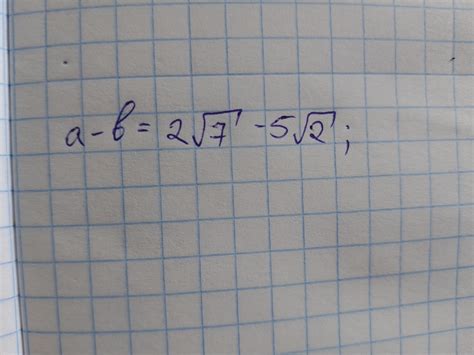 a-b = 2√7 - 5√2;